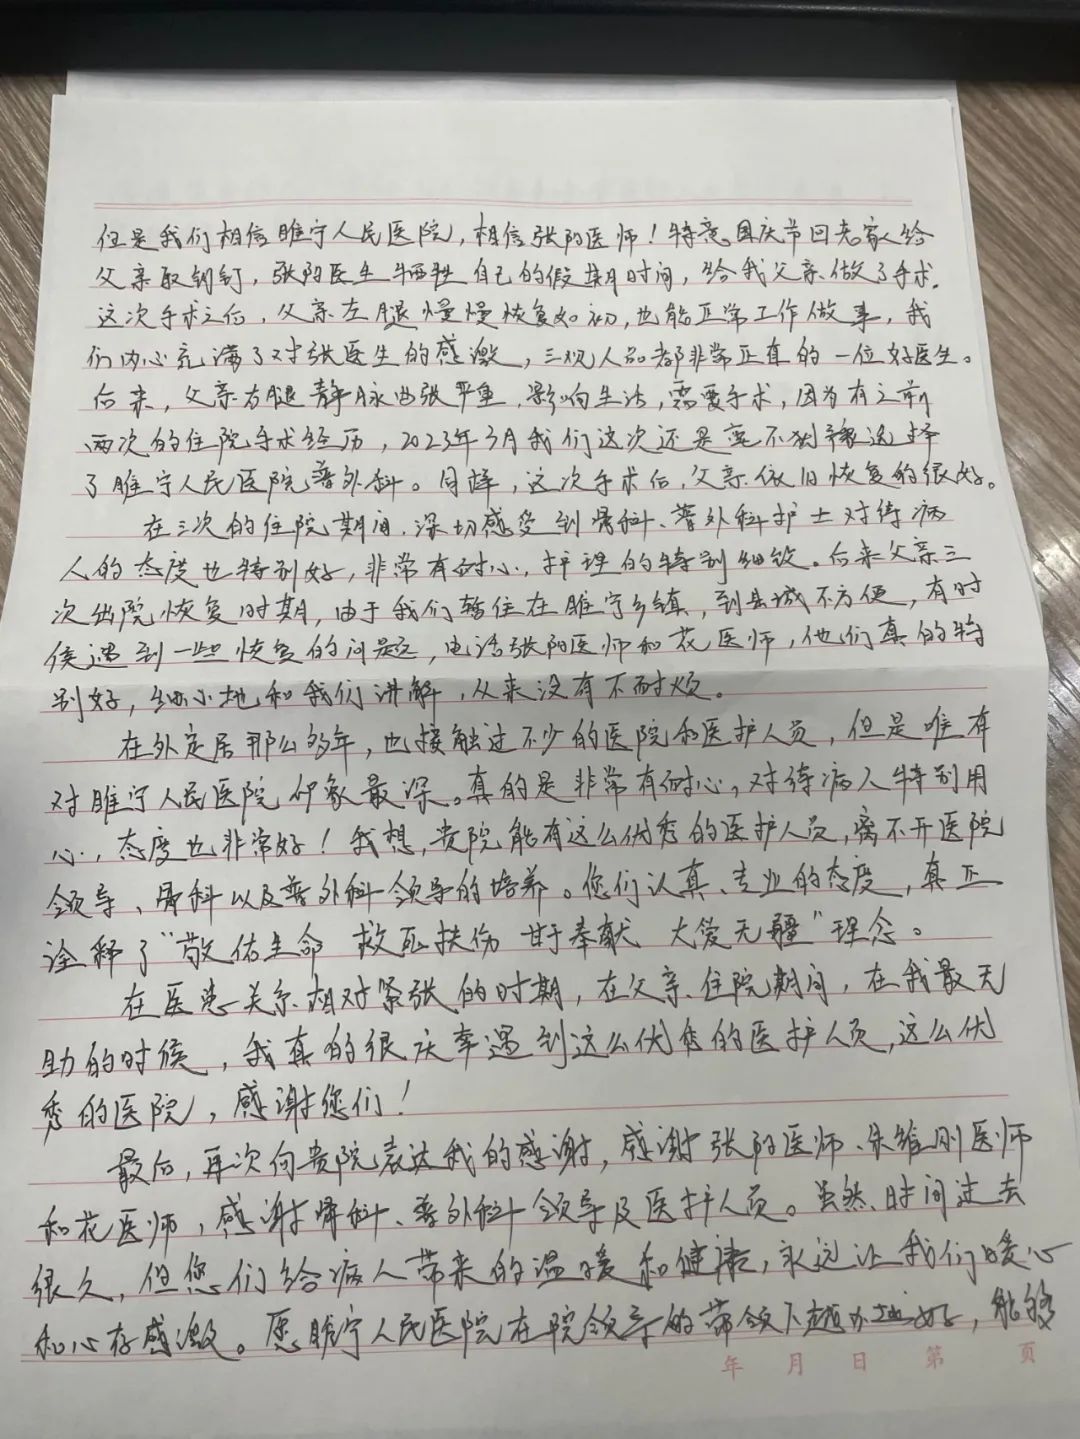 但是我们相信睢宁人民医院，相信张阳医师！特意国庆节回老家给
父亲取钢钉，张阳医生牺牲自己的假期时间，给我父亲做了手术.
这次手术之后，父亲左腿慢慢恢复如初，也能正常工作做事，我
们内心充满了对张医生的感激，三观人品都非常正直的一位好医生。
后来，父亲右腿静脉曲张严重，影响生活，需要手术，因为有之前
两次的住院手术经历，2023年3月我们这次还是毫不犹豫选择
了睢宁人民医院普外科。同样，这次手术后，父亲依旧恢复的很好。
在三次的住院期间，深切感受到骨科、普外科护士对待病
人的态度也特别好，非常有耐心，护理的特别细致。后来父亲三
次出院恢复时期，由于我们暂住在睢宁乡镇，到县城不方便，有时
候遇到一些恢复的问题，电话张阳医师和花医师，他们真的特
别好，细心地和我们讲解，从来没有不耐烦。
在外定居那么多年，也接触过不少的医院和医护人员，但是唯有
对睢宁人民医院印象最深。真的是非常有耐心，对待病人特别用
心，态度也非常好！我想，贵院能有这么优秀的医护人员，离不开医院
领导、骨科以及普外科领导的培养。您们认真、专业的态度，真正
诠释了“敬佑生命 救死扶伤 甘于奉献 大爱无疆”理念。
在医患关系相对紧张的时期，在父亲住院期间，在我最无
助的时候，我真的很庆幸遇到这么优秀的医护人员，这么优
秀的医院，感谢您们！
最后，再次向贵院表达我的感谢，感谢张阳医师、朱维刚医师
和花医师，感谢骨科、普外科领导及医护人员。虽然时间过去
很久，但您们给病人带来的温暖和健康，永远让我们暖心
和心存感激。愿睢宁人民医院在院领导的带领下越办越好，能够
年 月 日 第 页